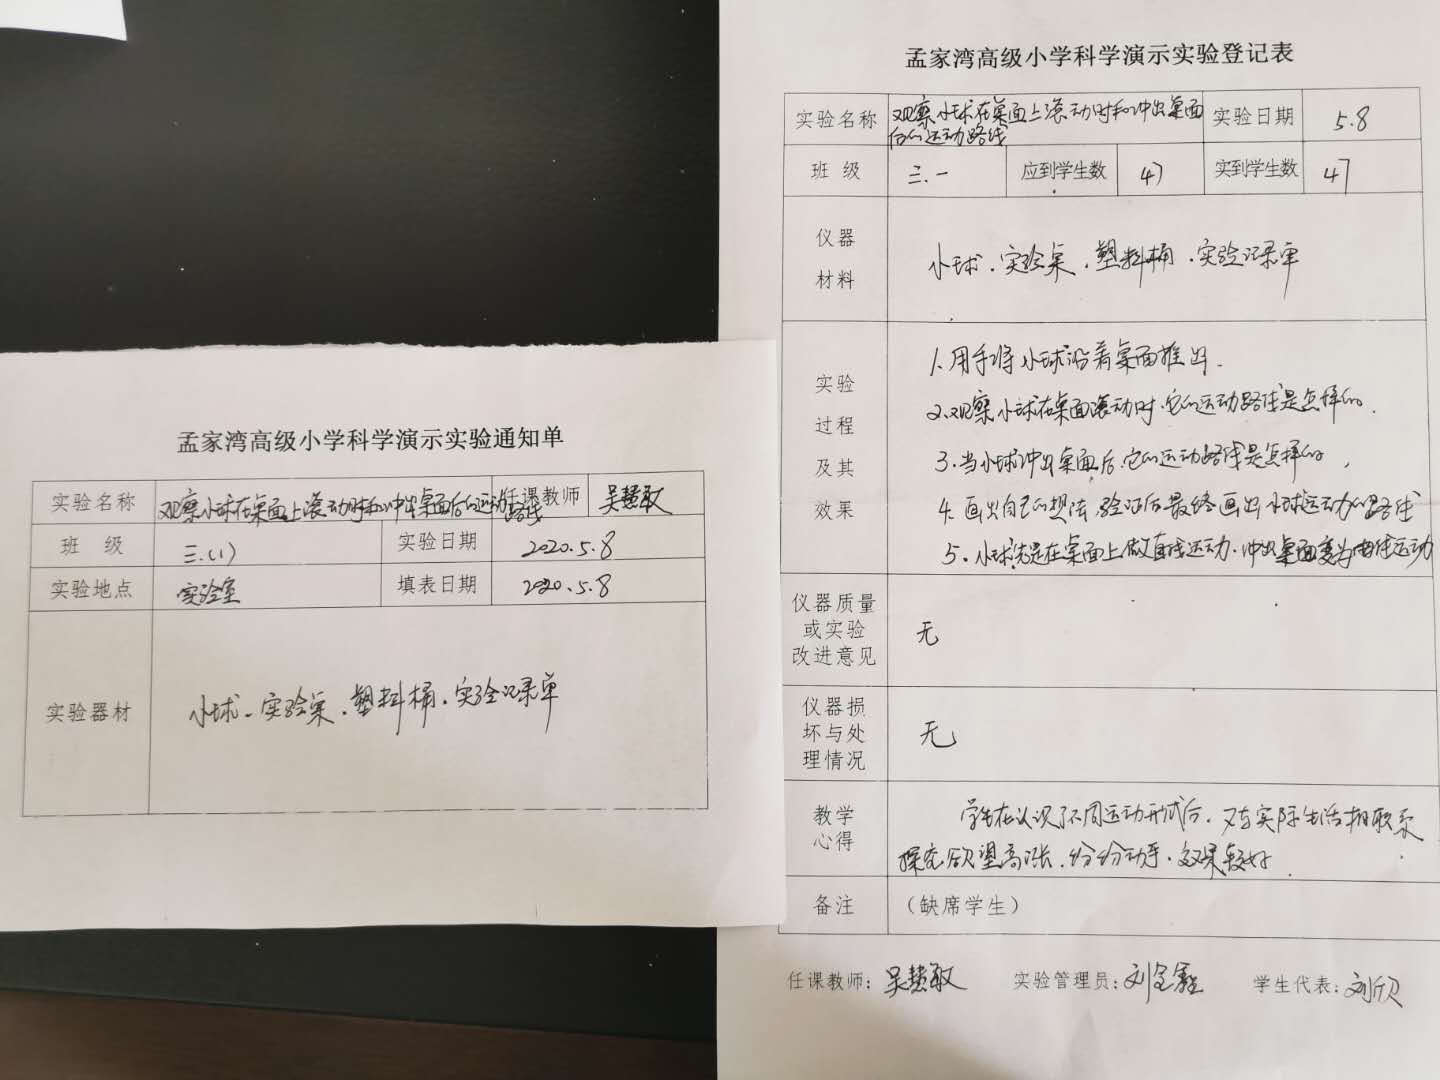 孟家湾高级小学科学演示实验通知单
实验名称 观察小球在桌面上滚动时和冲出桌面后的运动路线 任课教师 吴慧敏
班 级 三.(1) 实验日期 2020.5.8
实验地点 实验室 填表日期 2020.5.8
实验器材 小球、实验桌、塑料桶、实验记录单
孟家湾高级小学科学演示实验登记表
实验名称 观察小球在桌面上滚动时和冲出桌面 实验日期 5.8
后的运动路线
班 级 三.一 应到学生数 47 实到学生数 47
仪器
材料
小球、实验桌、塑料桶、实验记录单
实验
过程
及其
效果
1.用手将小球沿着桌面推出.
2.观察小球在桌面滚动时,它的运动路线是怎样的.
3.当小球冲出桌面后,它的运动路线是怎样的,
4.画出自己的想法,验证后最终画出小球运动的路线
5.小球先是在桌面上做直线运动.冲出桌面变为曲线运动
仪器质量
或实验
改进意见
无
仪器损
坏与处
理情况
无
教学
心得
学生在认识了不同运动形式后,又与实际生活相联系
探究欲望高涨,纷纷动手.效果较好.
备注 (缺席学生)
任课教师:吴慧敏 实验管理员:刘 学生代表:刘欣